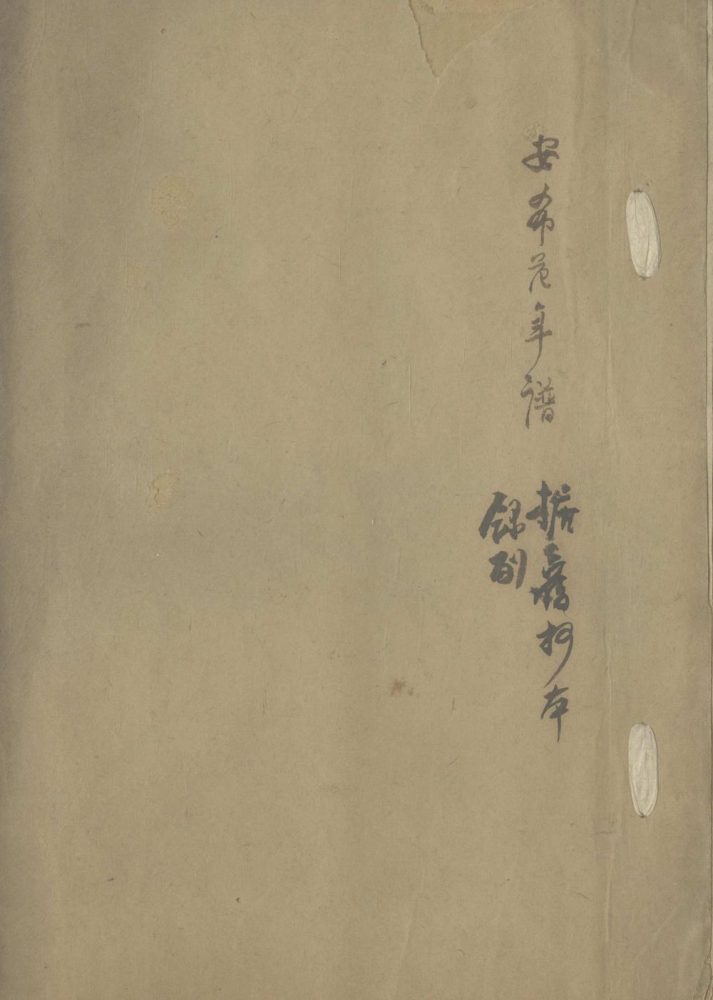 安希范年譜
據舊抄本
錄副